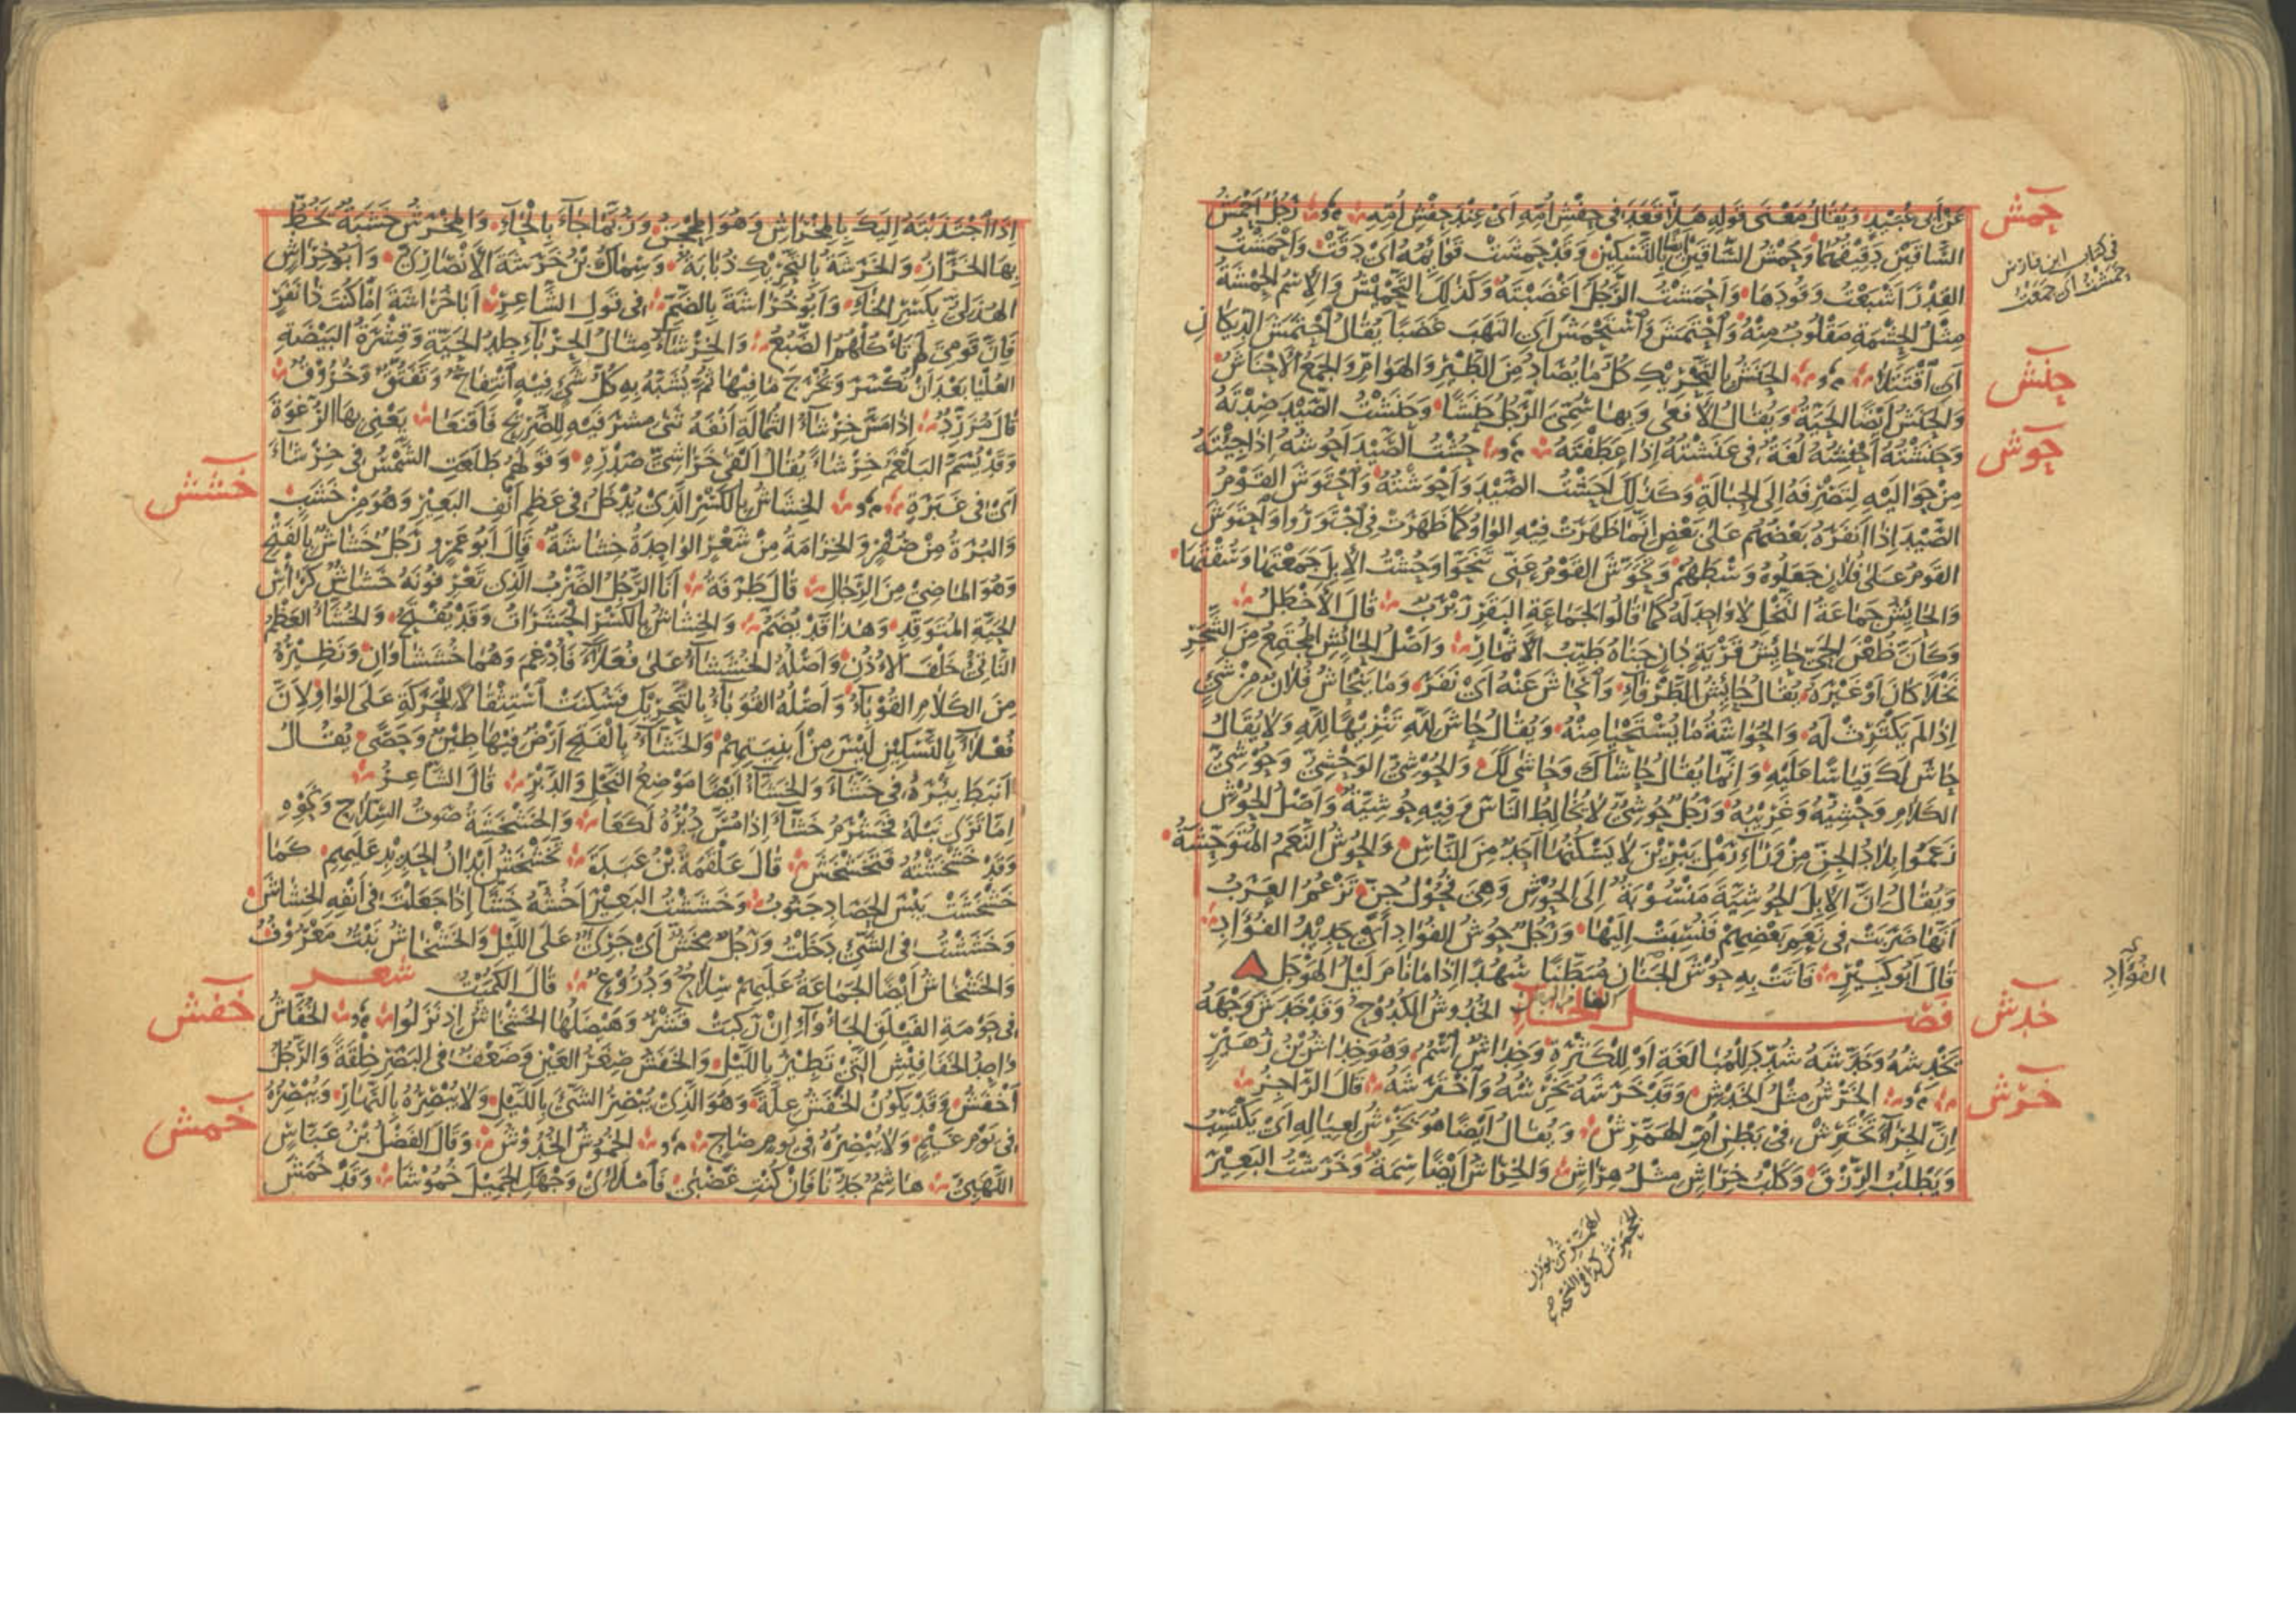 عَنْ اَبِى عُبَيْدٍ وَيُقَالُ مَعْنَى قَوْلِهِ هَلَّا قَعَدَ فِى حِفْشِ اُمِّهِ اَىْ عِنْدَ حِفْشِ اُمِّهِ رَجُلٌ اَحْمَشُ
حمش
السَّاقَيْنِ دَقِيْقُهُمَا وَحَمْشُ السَّاقَيْنِ اَيْضًا بِالتَّسْكِيْنِ وَقَدْ حَمِشَتْ قَوَائِمُهُ اَىْ دَقَّتْ وَاَحْمَشْتُ
فى كتاب ابن فارس
حمشت اى جمعت
القِدْرَ اَشْبَعْتُ وَقُوْدَهَا وَاَحْمَشْتُ الرَّجُلَ اَغْضَبْتَهُ وَكَذٰلِكَ التَّحْمِيْشُ وَالْاِسْمُ الحِمْشَةُ
مِثْلُ الحِشْمَةِ مَقْلُوْبٌ مِنْهُ وَاحْتَمَشَ وَاسْتَحْمَشَ اَىِ الْتَهَبَ غَضَبًا يُقَالُ احْتَمَشَ الدِّيْكَانِ
اَىِ اقْتَتَلَا الحَنَشُ بِالتَّحْرِيْكِ كُلُّ مَا يُصَادُ مِنَ الطَّيْرِ وَالهَوَامِّ وَالجَمْعُ الْاَحْنَاشُ
حنش
وَالحَنَشُ اَيْضًا الحَيَّةُ وَيُقَالُ الْاَفْعَى وَبِهَا سُمِّىَ الرَّجُلُ حَنَشًا وَحَنَشْتُ الصَّيْدَ صِدْتَهُ
وَحَنَشْتُهُ اَحْنِشُهُ لُغَةٌ فِى عَنَشْتُهُ اِذَا عَطَفْتَهُ حُشْتُ الصَّيْدَ اَحُوْشُهُ اِذَا جِئْتَهُ
حوش
مِنْ حَوَالَيْهِ لِتَصْرِفَهُ اِلَى الحِبَالَةِ وَكَذٰلِكَ اَحَشْتُ الصَّيْدَ وَاَحْوَشْتُهُ وَاحْتَوَشَ القَوْمُ
الصَّيْدَ اِذَا اَنْفَرَهُ بَعْضُهُمْ عَلَى بَعْضٍ اِنَّمَا ظَهَرَتْ فِيْهِ الوَاوُ كَمَا ظَهَرَتْ فِى اجْتَوَرُوا وَاحْتَوَشَ
القَوْمُ عَلَى فُلَانٍ جَعَلُوْهُ وَسْطَهُمْ وَتَحَوَّشَ القَوْمُ عَنِّى تَنَحَّوْا وَحُشْتُ الْاِبِلَ جَمَعْتُهَا وَسُقْتُهَا
وَالحَائِشُ جَمَاعَةُ النَّخْلِ لَا وَاحِدَ لَهُ كَمَا قَالُوا لِجَمَاعَةِ البَقَرِ رَبْرَبٌ قَالَ الْاَخْطَلُ
وَكَاَنَّ ظُعْنَ الحَىِّ حَائِشُ قَرْيَةٍ دَانٍ جَنَاهُ طَيِّبُ الْاَثْمَارِ وَاَصْلُ الحَائِشِ المُجْتَمِعُ مِنَ الشَّجَرِ
نَخْلًا كَانَ اَوْ غَيْرَهُ يُقَالُ حَائِشُ الطَّرْفَاءِ وَانْحَاشَ عَنْهُ اَىْ نَفَرَ وَمَا يَنْحَاشُ فُلَانٌ مِنْ شَىْءٍ
اِذَا لَمْ يَكْتَرِثْ لَهُ وَالحُوَاشَةُ مَا يُسْتَحْيَا مِنْهُ وَيُقَالُ حَاشَ لِلّٰهِ تَنْزِيْهًا لِلّٰهِ وَلَا يُقَالُ
حَاشَ لَكَ قِيَاسًا عَلَيْهِ وَاِنَّمَا يُقَالُ حَاشَاكَ وَحَاشَى لَكَ وَالحُوْشِىُّ الوَحْشِىُّ وَحُوْشِىُّ
الكَلَامِ وَحْشِيُّهُ وَغَرِيْبُهُ وَرَجُلٌ حُوْشِىٌّ لَا يُخَالِطُ النَّاسَ وَفِيْهِ حُوْشِيَّةٌ وَاَصْلُ الحُوْشِ
زَعَمُوا بِلَادُ الجِنِّ مِنْ وَرَاءِ رَمْلِ يَبْرِيْنَ لَا يَسْكُنُهَا اَحَدٌ مِنَ النَّاسِ وَالحُوْشُ النَّعَمُ المُتَوَحِّشَةُ
وَيُقَالُ اِنَّ الْاِبِلَ الحُوْشِيَّةَ مَنْسُوْبَةٌ اِلَى الحُوْشِ وَهِىَ فُحُوْلُ جِنٍّ تَزْعُمُ العَرَبُ
اَنَّهَا ضَرَبَتْ فِى نَعَمِ بَعْضِهِمْ فَنُسِبَتْ اِلَيْهَا وَرَجُلٌ حُوْشُ الفُؤَادِ اَىْ حَدِيْدُ الفُؤَادِ
الفُؤَادِ
قَالَ اَبُو كَبِيْرٍ فَاَتَتْ بِهِ حُوْشَ الجَنَانِ مُبَطَّنًا سُهُدًا اِذَا مَا نَامَ لَيْلُ الهَوْجَلِ
فصل الخاء الخُدُوْشُ الكُدُوْحُ وَقَدْ خَدَشَ وَجْهَهُ
خدش
يَخْدِشُهُ وَخَدَّشَهُ شُدِّدَ لِلْمُبَالَغَةِ اَوْ لِلْكَثْرَةِ وَخِدَاشٌ اسْمٌ وَهُوَ خِدَاشُ بْنُ زُهَيْرٍ
الخَرْشُ مِثْلُ الخَدْشِ وَقَدْ خَرَشَهُ يَخْرِشُهُ وَاخْتَرَشَهُ قَالَ الرَّاجِزُ
خرش
اِنَّ الجِرَاءَ تَخْتَرِشْ فِى بَطْنِ اُمِّ الهَمَّرِشْ وَيُقَالُ اَيْضًا هُوَ يَخْرِشُ لِعِيَالِهِ اَىْ يَكْتَسِبُ
وَيَطْلُبُ الرِّزْقَ وَكَلْبُ خِرَاشٍ مِثْلُ هِرَاشٍ وَالخِرَاشُ اَيْضًا سِمَةٌ وَخَرَشْتُ البَعِيْرَ
الهمّرش بوزن
الجحمرش
اِذَا اجْتَذَبْتَهُ اِلَيْكَ بِالمِخْرَاشِ وَهُوَ المِحْجَنُ وَرُبَّمَا جَاءَ بِالحَاءِ وَالمِخْرَشُ خَشَبَةٌ يَخُطُّ
بِهَا الخَرَّازُ وَالخَرَشَةُ بِالتَّحْرِيْكِ ذُبَابَةٌ وَسِمَاكُ بْنُ خَرَشَةَ الْاَنْصَارِىُّ وَاَبُو خِرَاشٍ
الهُذَلِىُّ بِكَسْرِ الخَاءِ وَاَبُو خُرَاشَةَ بِالضَّمِّ فِى قَوْلِ الشَّاعِرِ اَبَا خُرَاشَةَ اَمَّا كُنْتَ ذَا نَفَرٍ
فَاِنَّ قَوْمِىَ لَمْ تَاْكُلْهُمُ الضَّبُعُ وَالخِرْشَاءُ مِثَالُ الحِرْبَاءِ جِلْدُ الحَيَّةِ وَقِشْرَةُ البَيْضَةِ
العُلْيَا بَعْدَ اَنْ تُكْسَرَ وَيُخْرَجَ مَا فِيْهَا ثُمَّ يُشَبَّهُ بِهِ كُلُّ شَىْءٍ فِيْهِ انْتِفَاخٌ وَتَفَتُّقٌ وَخُرُوْقٌ
قَالَ مُزَرِّدٌ اِذَا مَسَّ خِرْشَاءَ الثُّمَالَةِ اَنْفُهُ ثَنَى مِشْفَرَيْهِ لِلصَّرِيْحِ فَاَقْنَعَا يَعْنِى بِهَا الرُّغْوَةَ
وَقَدْ يُسَمَّى البَلْغَمُ خِرْشَاءً يُقَالُ اَلْقَى خَرَاشِىَّ صَدْرِهِ وَقَوْلُهُمْ طَلَعَتِ الشَّمْسُ فِى خِرْشَاءَ
اَىْ فِى غَبَرَةٍ الخِشَاشُ بِالكَسْرِ الَّذِىْ يُدْخَلُ فِى عَظْمِ اَنْفِ البَعِيْرِ وَهُوَ مِنْ خَشَبٍ
خشش
وَالبُرَةُ مِنْ صُفْرٍ وَالخِزَامَةُ مِنْ شَعْرٍ الوَاحِدَةُ خِشَاشَةٌ قَالَ اَبُو عَمْرٍو رَجُلٌ خَشَاشٌ بِالفَتْحِ
وَهُوَ المَاضِىْ مِنَ الرِّجَالِ قَالَ طَرَفَةُ اَنَا الرَّجُلُ الضَّرْبُ الَّذِى تَعْرِفُوْنَهُ خَشَاشٌ كَرَاْسِ
الحَيَّةِ المُتَوَقِّدِ وَهٰذَا قَدْ يُضَمُّ وَالخِشَاشُ بِالكَسْرِ الحَشَرَاتُ وَقَدْ يُفْتَحُ وَالخُشَّاءُ العَظْمُ
النَّاتِئُ خَلْفَ الْاُذُنِ وَاَصْلُهُ الخُشَشَاءُ عَلَى فُعَلَاءَ فَاُدْغِمَ وَهُمَا خُشَشَاوَانِ وَنَظِيْرُهُ
مِنَ الكَلَامِ القُوْبَاءُ وَاَصْلُهُ القُوَبَاءُ بِالتَّحْرِيْكِ فَسُكِّنَتْ اسْتِثْقَالًا لِلْحَرَكَةِ عَلَى الوَاوِ لِاَنَّ
فُعْلَاءَ بِالتَّسْكِيْنِ لَيْسَ مِنْ اَبْنِيَتِهِمْ وَالخَشَّاءُ بِالْفَتْحِ اَرْضٌ فِيْهَا طِيْنٌ وَحَصًى يُقَالُ
اَنْبَطَ بِئْرَهُ فِى خَشَّاءَ وَالخَشَّاءُ اَيْضًا مَوْضِعُ النَّحْلِ وَالدَّبْرِ قَالَ الشَّاعِرُ
اِمَّا تَرَىْ نَبْلَهُ فَخَشْرَمُ خَشَّاءَ اِذَا مُسَّ دَبْرُهُ لَكَعَا وَالخَشْخَشَةُ صَوْتُ السِّلَاحِ وَنَحْوِهِ
وَقَدْ خَشْخَشْتُهُ فَتَخَشْخَشَ قَالَ عَلْقَمَةُ بْنُ عَبَدَةَ تَخَشْخَشُ اَبْدَانُ الحَدِيْدِ عَلَيْهِمِ كَمَا
خَشْخَشَتْ يَبْسَ الحَصَادِ جَنُوْبُ وَخَشَشْتُ البَعِيْرَ اَخُشُّهُ خَشًّا اِذَا جَعَلْتَ فِى اَنْفِهِ الخِشَاشَ
وَخَشَشْتُ فِى الشَّىْءِ دَخَلْتُ وَرَجُلٌ مِخَشٌّ اَىْ جَرِىْءٌ عَلَى اللَّيْلِ وَالخَشْخَاشُ نَبْتٌ مَعْرُوْفٌ
وَالخَشْخَاشُ اَيْضًا الجَمَاعَةُ عَلَيْهِمْ سِلَاحٌ وَدُرُوْعٌ قَالَ الكُمَيْتُ شعر
فِى حَوْمَةِ الفَيْلَقِ الجَاْوَاءِ اِنْ رَكِبَتْ قَسْرٌ وَهَيْضَلُهَا الخَشْخَاشُ اِذْ نَزَلُوا الخُفَّاشُ
خفش
وَاحِدُ الخَفَافِيْشِ الَّتِىْ تَطِيْرُ بِاللَّيْلِ وَالخَفَشُ صِغَرُ العَيْنِ وَضَعْفٌ فِى البَصَرِ خِلْقَةً وَالرَّجُلُ
اَخْفَشُ وَقَدْ يَكُوْنُ الخَفَشُ عِلَّةً وَهُوَ الَّذِىْ يُبْصِرُ الشَّىْءَ بِاللَّيْلِ وَلَا يُبْصِرُهُ بِالنَّهَارِ وَيُبْصِرُهُ
فِى يَوْمِ غَيْمٍ وَلَا يُبْصِرُهُ فِى يَوْمٍ صَاحٍ الخُمُوْشُ الخُدُوْشُ وَقَالَ الفَضْلُ بْنُ عَبَّاسٍ
خمش
اللَّهَبِىُّ هَاشِمٌ جَدُّنَا فَاِنْ كُنْتِ غَضْبَى فَامْلَاِىْ وَجْهَكِ الجَمِيْلَ خُمُوْشَا وَقَدْ خَمَشَ